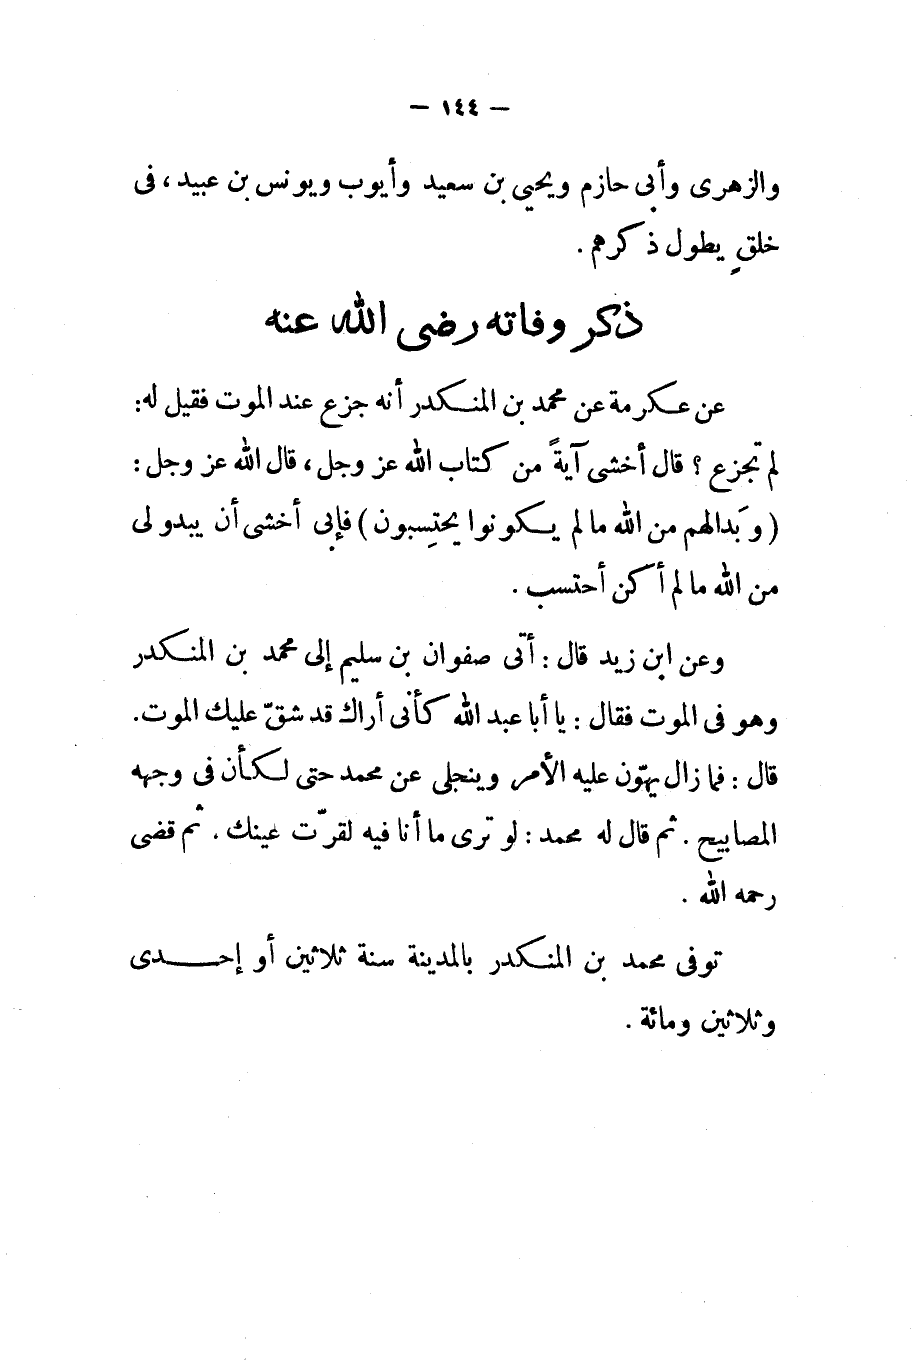 — ١٤٤ —
والزهرى وأبى حازم ويحيى بن سعيد وأيوب ويونس بن عبيد، فى
خلقٍ يطول ذكرهم .
ذكر وفاته رضى الله عنه
عن عكرمة عن محمد بن المنكدر أنه جزع عند الموت فقيل له:
لم تجزع ؟ قال أخشى آيةً من كتاب الله عز وجل، قال الله عز وجل :
( وَبدالهم من الله مالم يكونوا يحتِسبون ) فإنى أخشى أن يبدو لى
من الله مالم أكن أحتسب .
وعن ابن زيد قال : أتى صفوان بن سليم إلى محمد بن المنكدر
وهو فى الموت فقال : يا أبا عبد الله كأنى أراك قد شقّ عليك الموت.
قال : فما زال يهوّن عليه الأمر وينجلى عن محمد حتى لكأن فى وجهه
المصابيح . ثم قال له محمد : لو ترى ما أنا فيه لقرّت عينك . ثم قضى
رحمه الله .
توفى محمد بن المنكدر بالمدينة سنة ثلاثين أو إحـــدى
وثلاثين ومائة .